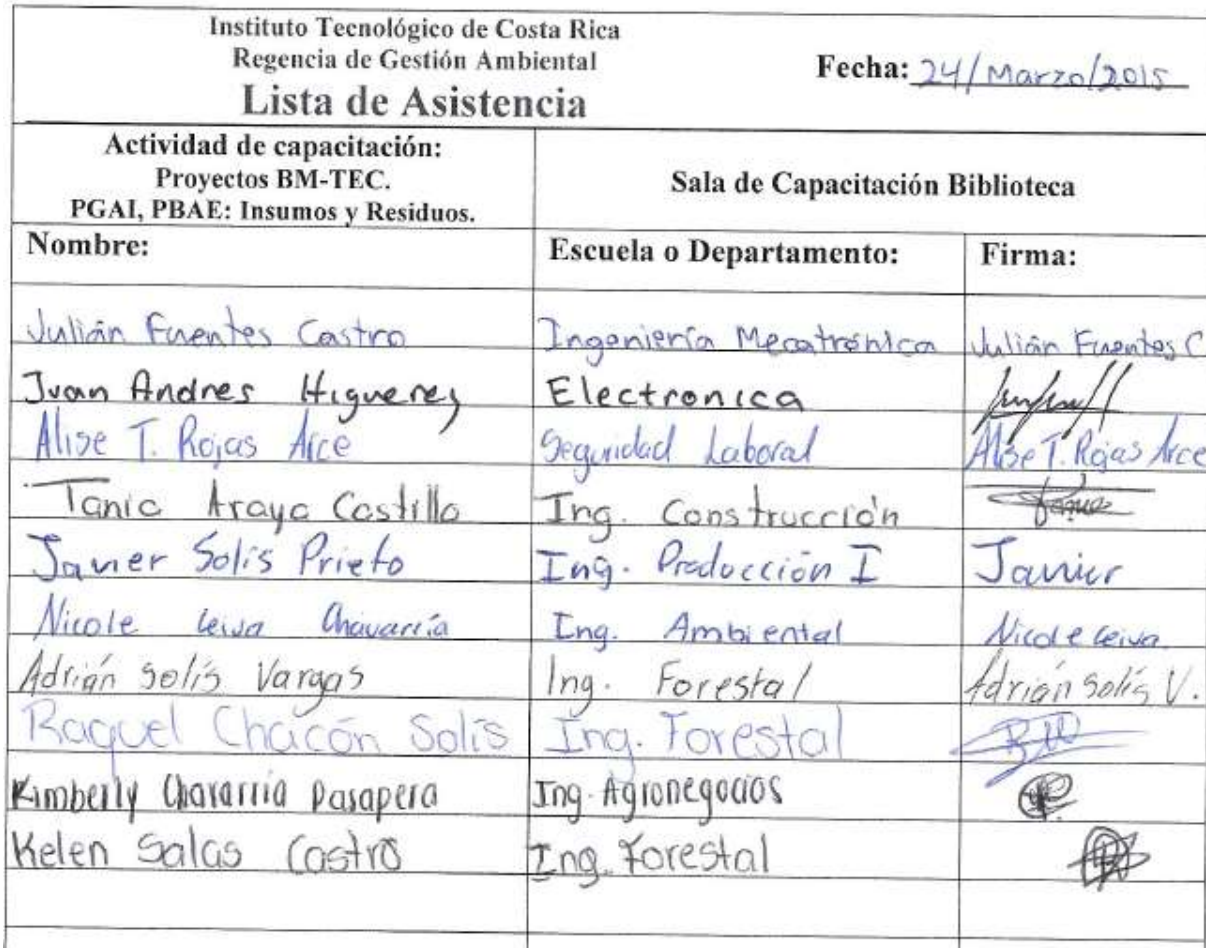 Instituto Tecnológico de Costa Rica
Regencia de Gestión Ambiental
Lista de Asistencia
Fecha: 24/Marzo/2015
Actividad de capacitación:
Proyectos BM-TEC.
PGAI, PBAE: Insumos y Residuos.
Sala de Capacitación Biblioteca
Nombre: Escuela o Departamento: Firma:
Julián Fuentes Castro Ingeniería Mecatrónica Julián Fuentes C
Juan Andres Higueres Electronica
Alise T. Rojas Arce Seguridad Laboral Alise T. Rojas Arce
Tania Araya Castillo Ing. Construcción
Javier Solís Prieto Ing. Producción I Javier
Nicole Leiva Chavarría Ing. Ambiental Nicole Leiva
Adrián Solís Vargas Ing. Forestal Adrián Solís V.
Raquel Chacón Solís Ing. Forestal
Kimberly Chavarría Dasapera Ing. Agronegocios
Kelen Salas Castro Ing. Forestal